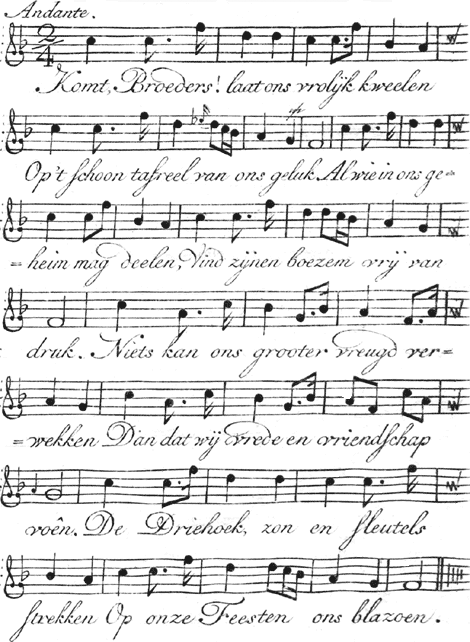 Andante.
2/4
Komt, Broeders! laat ons vrolijk kweelen
Op't schoon tafreel van ons geluk. Al wie in ons ge=
=heim mag deelen, Vind zijnen boezem vrij van
druk. Niets kan ons grooter vreugd ver=
=wekken Dan dat wij vrede en vriendschap
voên. De Driehoek, zon en sleutels
strekken Op onze Feesten ons blazoen.